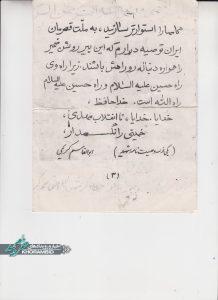 همانها را استوارتر سازید، به ملت قهرمان
ایران توصیه دارم که این پیر روشن ضمیر
را همواره دنباله رو راهش باشند، زیرا راه وی
راه حسین علیه السلام و راه حسین علیه السلام
راه الله است. خداحافظ،
خدایا، خدایا، تا انقلاب مهدی،
خمینی را نگهدار،
ابوالقاسم کریمی
(۳)
KHORAMBID